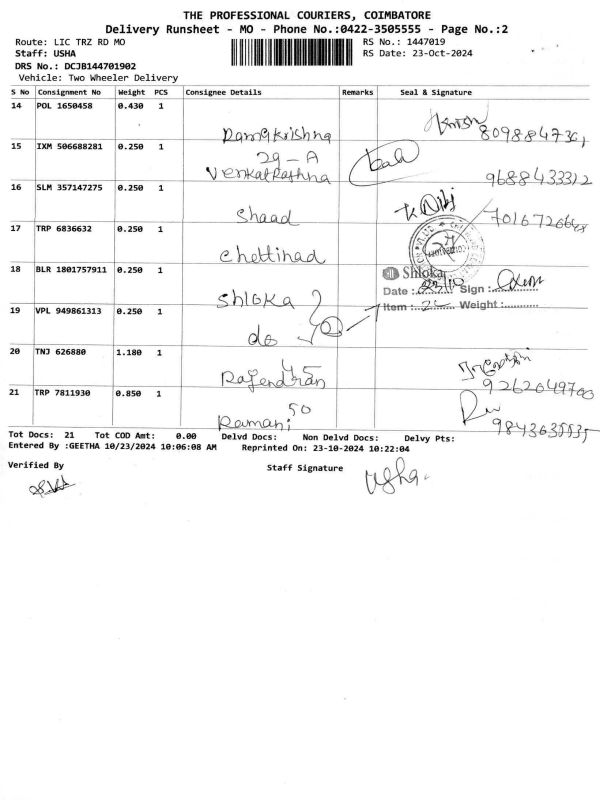 THE PROFESSIONAL COURIERS, COIMBATORE
Delivery Runsheet - MO - Phone No.:0422-3505555 - Page No.:2
Route: LIC TRZ RD MO RS No.: 1447019
Staff: USHA RS Date: 23-Oct-2024
DRS No.: DCJB144701902
Vehicle: Two Wheeler Delivery
S No Consignment No Weight PCS Consignee Details Remarks Seal & Signature
14 POL 1650458 0.430 1
Ramakrishna
15 IXM 506688281 0.250 1
29-A
Venkatrathna
9688433312
16 SLM 357147275 0.250 1
Shaad
17 TRP 6836632 0.250 1
Chettinad
18 BLR 1801757911 0.250 1
Shloka
Shloka
Date : Sign :
Item : Weight :
19 VPL 949861313 0.250 1
do
20 TNJ 626880 1.180 1
45
Rajendran
9262049700
21 TRP 7811930 0.850 1
50
Ramani
9843635535
Tot Docs: 21 Tot COD Amt: 0.00 Delvd Docs: Non Delvd Docs: Delvy Pts:
Entered By :GEETHA 10/23/2024 10:06:08 AM Reprinted On: 23-10-2024 10:22:04
Verified By Staff Signature
Usha.